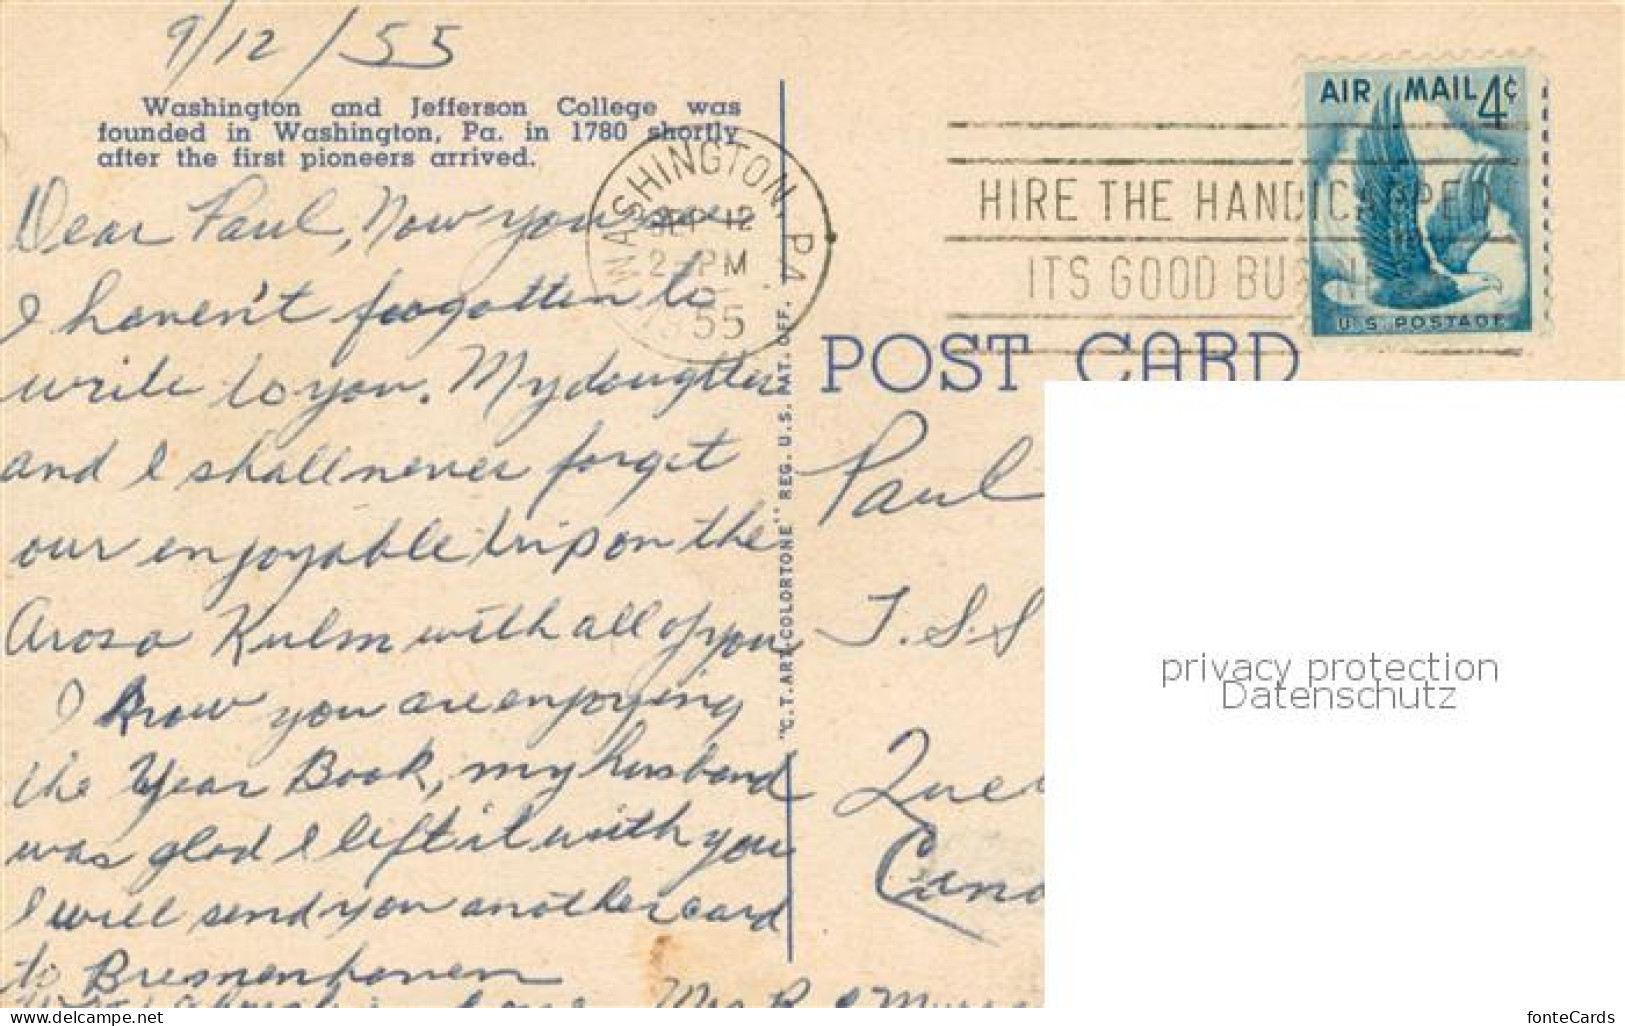 9/12/55
Washington and Jefferson College was
founded in Washington, Pa. in 1780 shortly
after the first pioneers arrived.
Dear Paul, Now you see
I haven't forgotten to
write to you. My daughter
and I shall never forget
our enjoyable trip on the
Arosa Kulm with all of you
I know you are enjoying
the Year Book, my husband
was glad I left it with you
I will send you another card
to Bremenhaven
love Mrs R
"C.T. ART-COLORTONE" REG. U.S. PAT. OFF.
WASHINGTON, PA.
SEP 12
2-PM
1955
HIRE THE HANDICAPPED
ITS GOOD BUSINESS
AIR MAIL 4¢
U.S. POSTAGE
POST CARD
Paul
T.S.S
Que
Cana
privacy protection
Datenschutz
www.delcampe.net
fonteCards